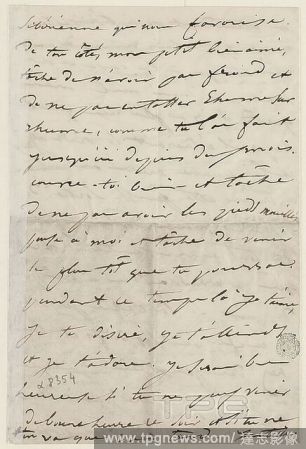 De ton côté, mon ptit bienaimé,
tâche de n'avoir pas froid et
de ne pas entasser rhume sur
rhume, comme tu l'as fait
jusqu'ici depuis deux mois.
couvre-toi bien et tâche
de ne pas avoir les pieds mouillés
pense à moi et tâche de venir
le plus tôt que tu pourras.
pendant ce temps là je t'aime,
je te désire, je t'attends
et je t'adore. je serai bien
heureuse si tu peux venir
de bonne heure ce soir et si tu ne
α 8354
TPG
www.tpgnews.com / 達志影像